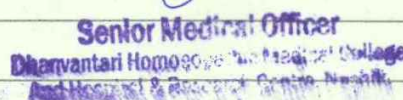 Senior Medical Officer
Dhanvantari Homoeopathic Medical College
And Hospital & Research Centre, Nashik